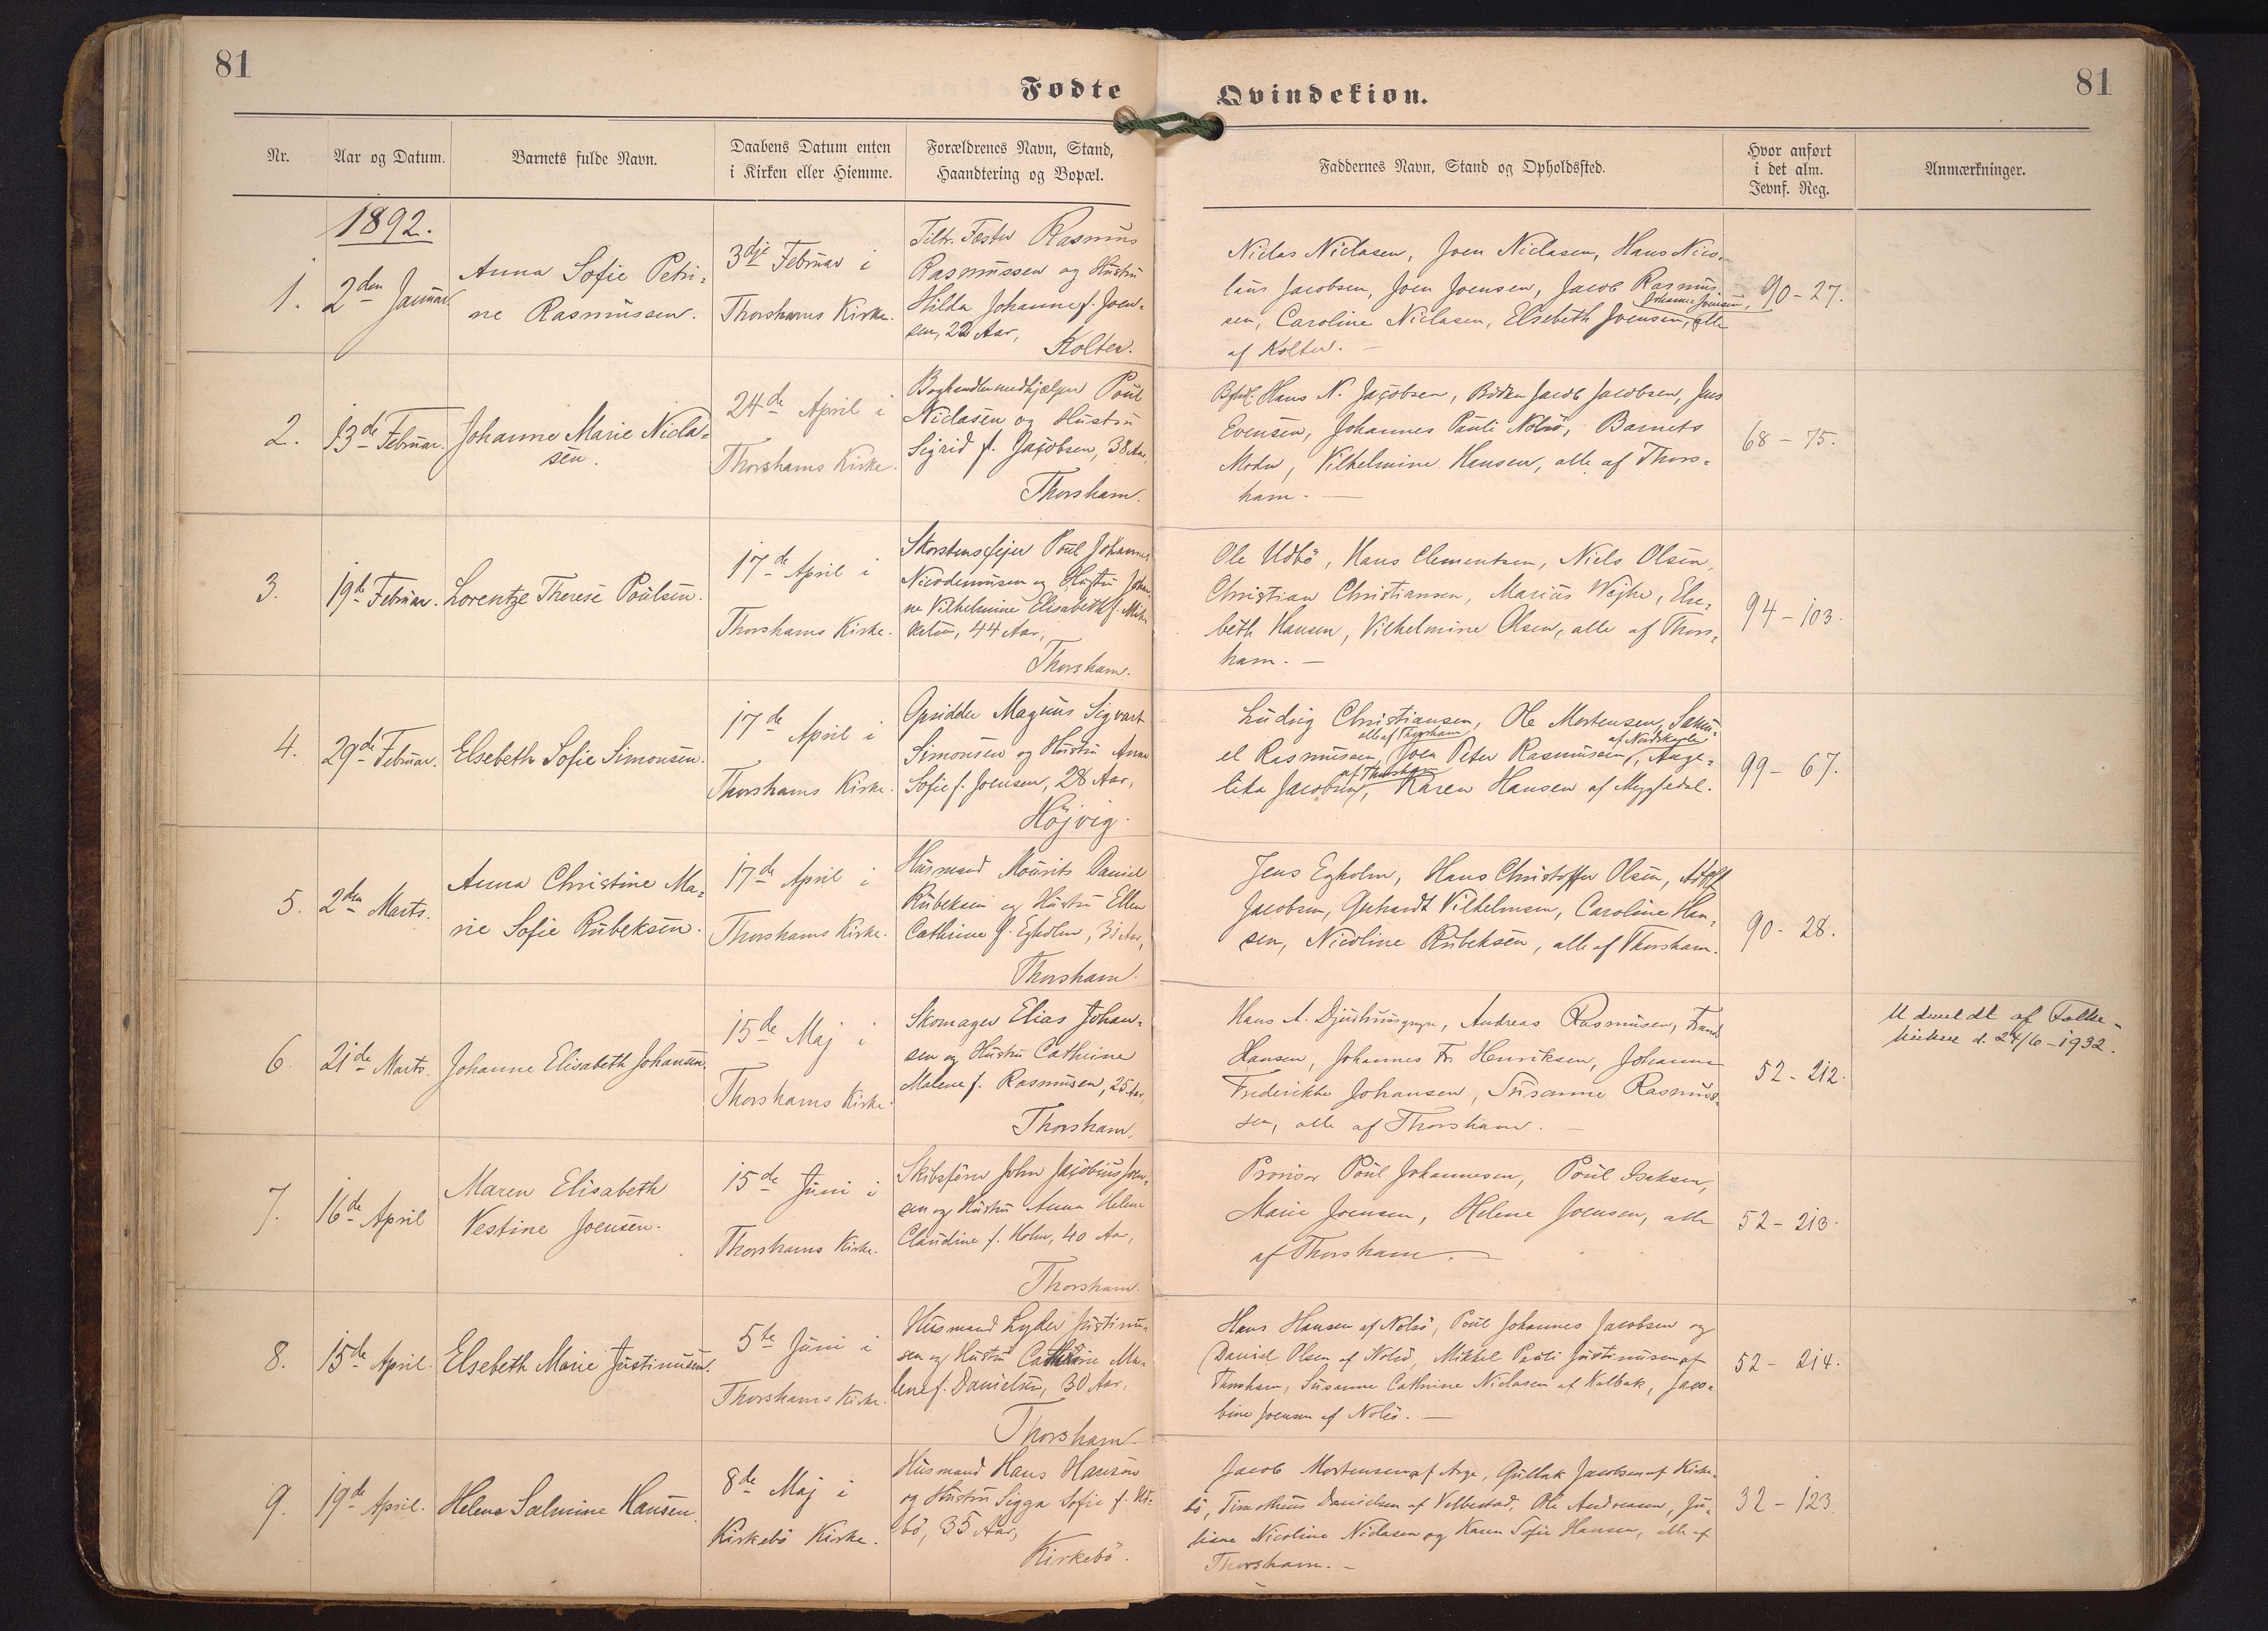 81
Fødte
Qvindekiøn.
81
Nr.
Aar og Datum.
Barnets fulde Navn.
Daabens Datum enten
i Kirken eller Hiemme.
Forældrenes Navn, Stand,
Haandtering og Bopæl.
Faddernes Navn, Stand og Opholdssted.
Hvor anført
i det alm.
Jevnf. Reg.
Anmærkninger.
1892.
1.
2den Januar
Anna Sofie Petri-
ne Rasmussen.
3die Februar i
Thorshavns Kirke.
Fæster Rasmus
Rasmussen og Hustru
Hilda Johanne f. Joen-
sen, 22 Aar,
Kolter.
Niclas Niclasen, Joen Niclasen, Hans Nico-
laus Jacobsen, Joen Joensen, Jacob Rasmus-
Johanne Joensen,
sen, Caroline Niclasen, Elsebeth Joensen, alle
af Kolter. –
90 – 27.
2.
13de Februar.
Johanne Marie Nicla-
sen.
24de April i
Thorshavns Kirke.
Boghandlermedhjælper Poul
Niclasen og Hustru
Sigrid f. Jacobsen, 38 Aar,
Thorshavn.
Hans N. Jacobsen, Bødker Jacob Jacobsen, Jens
Evensen, Johannes Pauli Nolsö, Barnets
Moder, Vilhelmine Hansen, alle af Thors-
havn. –
68 – 75.
3.
19de Februar.
Lorentze Therese Poulsen.
17de April i
Thorshavns Kirke.
Skorstensfejer Poul Johannes
Nicodemusen og Hustru Johan-
ne Vilhelmine Elisabeth f. Mik-
kelsen, 44 Aar,
Thorshavn.
Ole Udbö, Hans Clementsen, Niels Olsen,
Christian Christiansen, Marius Wejhe, Else-
beth Hansen, Vilhelmine Olsen, alle af Thors-
havn. –
94 – 103.
4.
29de Februar.
Elsebeth Sofie Simonsen.
17de April i
Thorshavns Kirke.
Opsidder Magnus Sigvart
Simonsen og Hustru Anna
Sofie f. Joensen, 28 Aar,
Höjvig.
Ludvig Christiansen, Ole Mortensen, Samu-
alle af Thorshavn
el Rasmussen, Joen Peter Rasmussen, Ange-
af Thorshavn
lika Jacobsen, Karen Hansen af Myggedal.
99 – 67.
5.
2den Marts.
Anna Christine Ma-
rie Sofie Rubeksen.
17de April i
Thorshavns Kirke.
Husmand Mourits Daniel
Rubeksen og Hustru Ellen
Cathrine f. Egholm, 31 Aar,
Thorshavn.
Jens Egholm, Hans Christoffer Olsen, Adolf
Jacobsen, Gerhardt Vilhelmsen, Caroline Han-
sen, Nicoline Rubeksen, alle af Thorshavn.
90 – 28.
6.
21de Marts.
Johanne Elisabeth Johansen.
15de Maj i
Thorshavns Kirke.
Skomager Elias Johan-
sen og Hustru Cathrine
Malene f. Rasmussen, 25 Aar,
Thorshavn.
Hans A. Djurhuus, Andreas Rasmussen, Frants
Hansen, Johannes Fr. Henriksen, Johanna
Frederikke Johansen, Susanne Rasmus-
sen, alle af Thorshavn. –
52 – 212.
Udmeldt af Folke-
kirken d. 24/6 – 1932.
7.
16de April
Maren Elisabeth
Vestine Joensen.
15de Juni i
Thorshavns Kirke.
Skibsfører John Jacobius Joen-
sen og Hustru Anna Helene
Claudine f. Holm, 40 Aar,
Thorshavn.
Provisor Poul Johannesen, Poul Isaksen,
Marie Joensen, Helene Joensen, alle
af Thorshavn. –
52 – 213.
8.
15de April.
Elsebeth Marie Justinusen.
5te Juni i
Thorshavns Kirke.
Husmand Lyder Justinu-
sen og Hustru Cathrine Ma-
lene f. Danielsen, 30 Aar,
Thorshavn.
Hans Hansen af Nolsö, Poul Johannes Jacobsen og
Daniel Olsen af Nolsö, Mikkel Pauli Justinusen af
Thorshavn, Susanne Cathrine Niclasen af Kalbak, Jaco-
bine Joensen af Nolsö. –
52 – 214.
9.
19de April.
Helene Salmine Hansen.
8de Maj i
Kirkebö Kirke.
Husmand Hans Hansen
og Hustru Sigga Sofie f. Ud-
bö, 35 Aar,
Kirkebö.
Jacob Mortensen af Arge, Gullak Jacobsen af Kirke-
bö, Timotheus Danielsen af Velbestad, Ole Andreasen, Ju-
liane Nicoline Niclasen og Karen Sofie Hansen, alle af
Thorshavn. –
32 – 123.